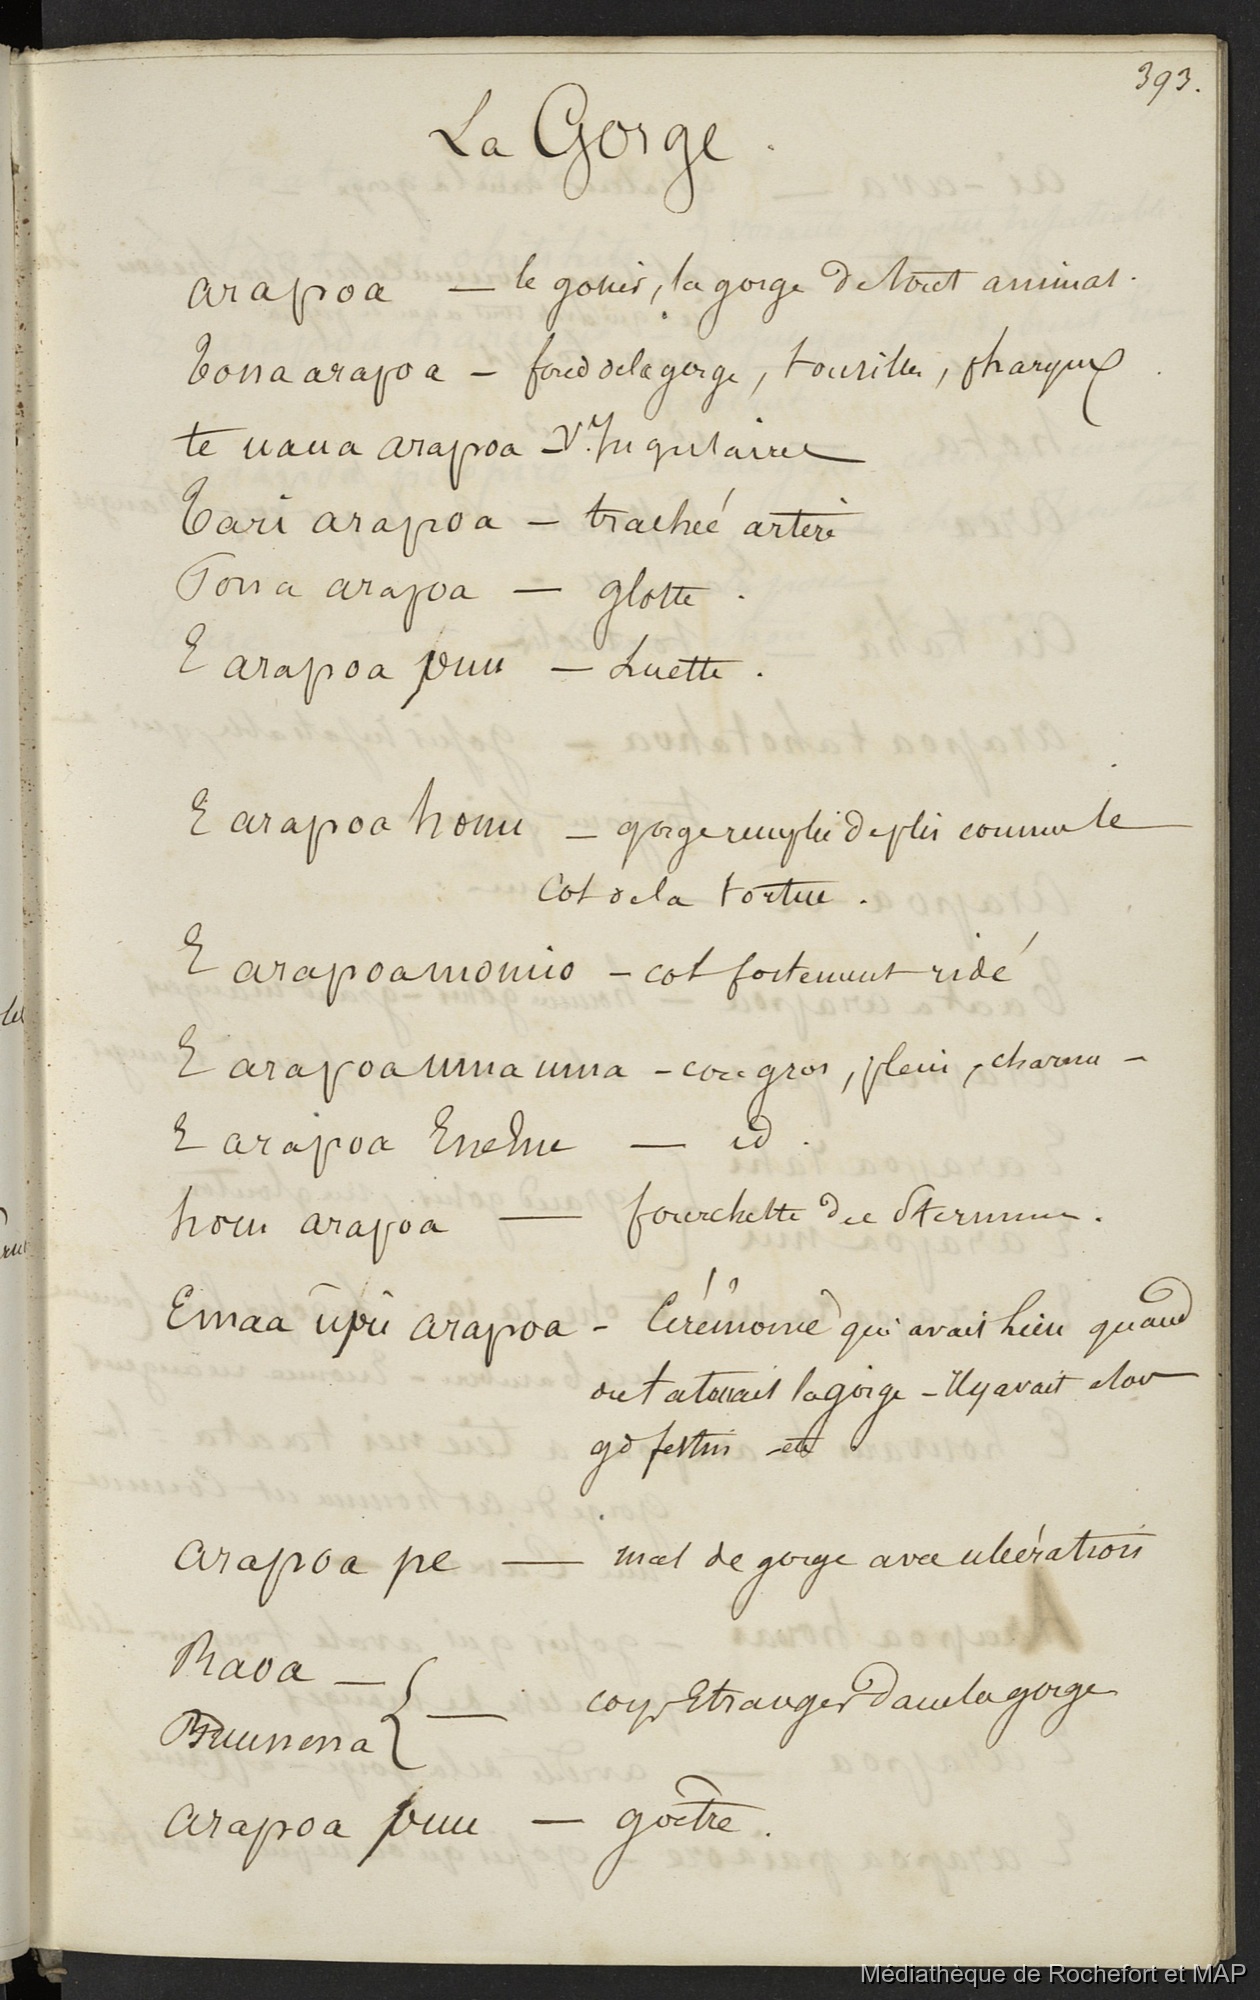 393.
La Gorge.
arapoa — le gosier, la gorge de tout animal.
Tona arapoa — fond de la gorge, tonsilles, pharynx
te uaua arapoa — V. Jugulaires
Tari arapoa — trachée artère
Tona arapoa — glotte.
E arapoa puu — Luette.
E arapoa honu — gorge remplie de plis comme le
Col de la tortue.
E arapoa momio — col fortement ridé
E arapoa uma uma — cou gros, plein, charnu —
E arapoa Enenu — id.
hou arapoa — fourchette du Sternum.
Emaa upu arapoa — Cérémonie qui avait lieu quand
on tatouait la gorge — Il y avait alor
gd festin etc
arapoa pe — mal de gorge avec ulcération
Raoa —
Puunena { — corps Etranger dans la gorge
arapoa puu — goêtre.
Médiathèque de Rochefort et MAP